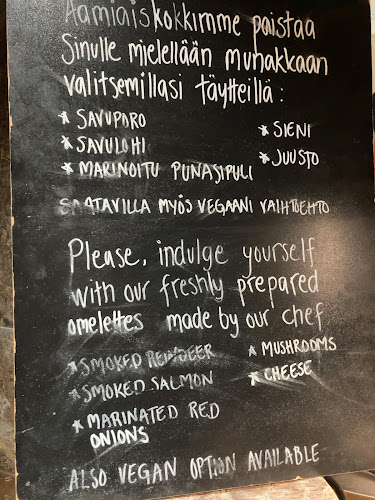 Aamiaiskokkimme paistaa
Sinulle mielellään munakkaan
valitsemillasi täytteillä:
* SAVUPORO
* SIENI
* SAVULOHI
* JUUSTO
* MARINOITU PUNASIPULI
SAATAVILLA MYÖS VEGAANI VAIHTOEHTO
Please, indulge yourself
with our freshly prepared
omelettes made by our chef
* SMOKED REINDEER
* MUSHROOMS
* SMOKED SALMON
* CHEESE
* MARINATED RED
ONIONS
ALSO VEGAN OPTION AVAILABLE